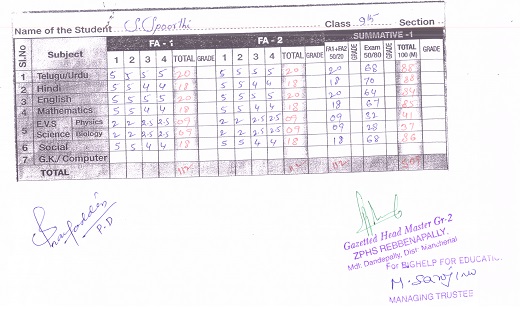 Name of the Student S. Spoorthi Class 9th Section
Sl.No Subject FA - 1 FA - 2 SUMMATIVE -1
1 2 3 4 TOTAL GRADE 1 2 3 4 TOTAL GRADE FA1+FA2 50/20 GRADE Exam 50/80 GRADE TOTAL 100 (M) GRADE
1 Telugu/Urdu 5 5 5 5 20 5 5 5 5 20 20 68 88
2 Hindi 5 5 4 4 18 5 5 4 4 18 18 70 88
3 English 5 5 5 5 20 5 5 5 5 20 20 64 84
4 Mathematics 5 5 4 4 18 5 5 4 4 18 18 67 85
5 E.V.S Physics 2 2 2.5 2.5 09 2 2 2.5 2.5 09 09 32 41
Science Biology 2 2 2.5 2.5 09 2 2 2.5 2.5 09 09 28 37
6 Social 5 5 4 4 18 5 5 4 4 18 18 68 86
7 G.K./ Computer
TOTAL 112 112 112
P.D
Gazetted Head Master Gr-2
ZPHS REBBENAPALLY.
Mdl: Dandepally, Dist: Mancherial
For BIGHELP FOR EDUCATI..
M. Sarojino
MANAGING TRUSTEE